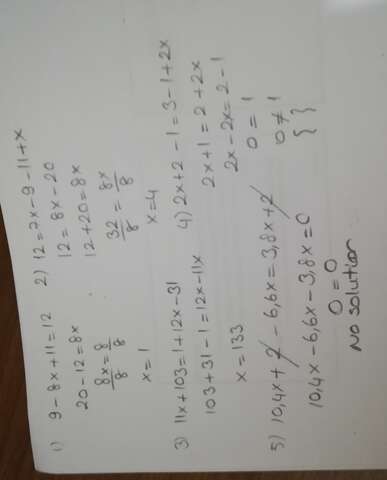 1) 9-8x+11=12
20-12=8x
8x/8=8/8
x=1
2) 12=7x-9-11+x
12=8x-20
12+20=8x
32/8=8x/8
x=4
3) 11x+103=1+12x-31
103+31-1=12x-11x
x=133
4) 2x+2-1=3-1+2x
2x+1=2+2x
2x-2x=2-1
0=1
0≠1
{ }
5) 10,4x+2-6,6x=3,8x+2
10,4x-6,6x-3,8x=0
0=0
No solution